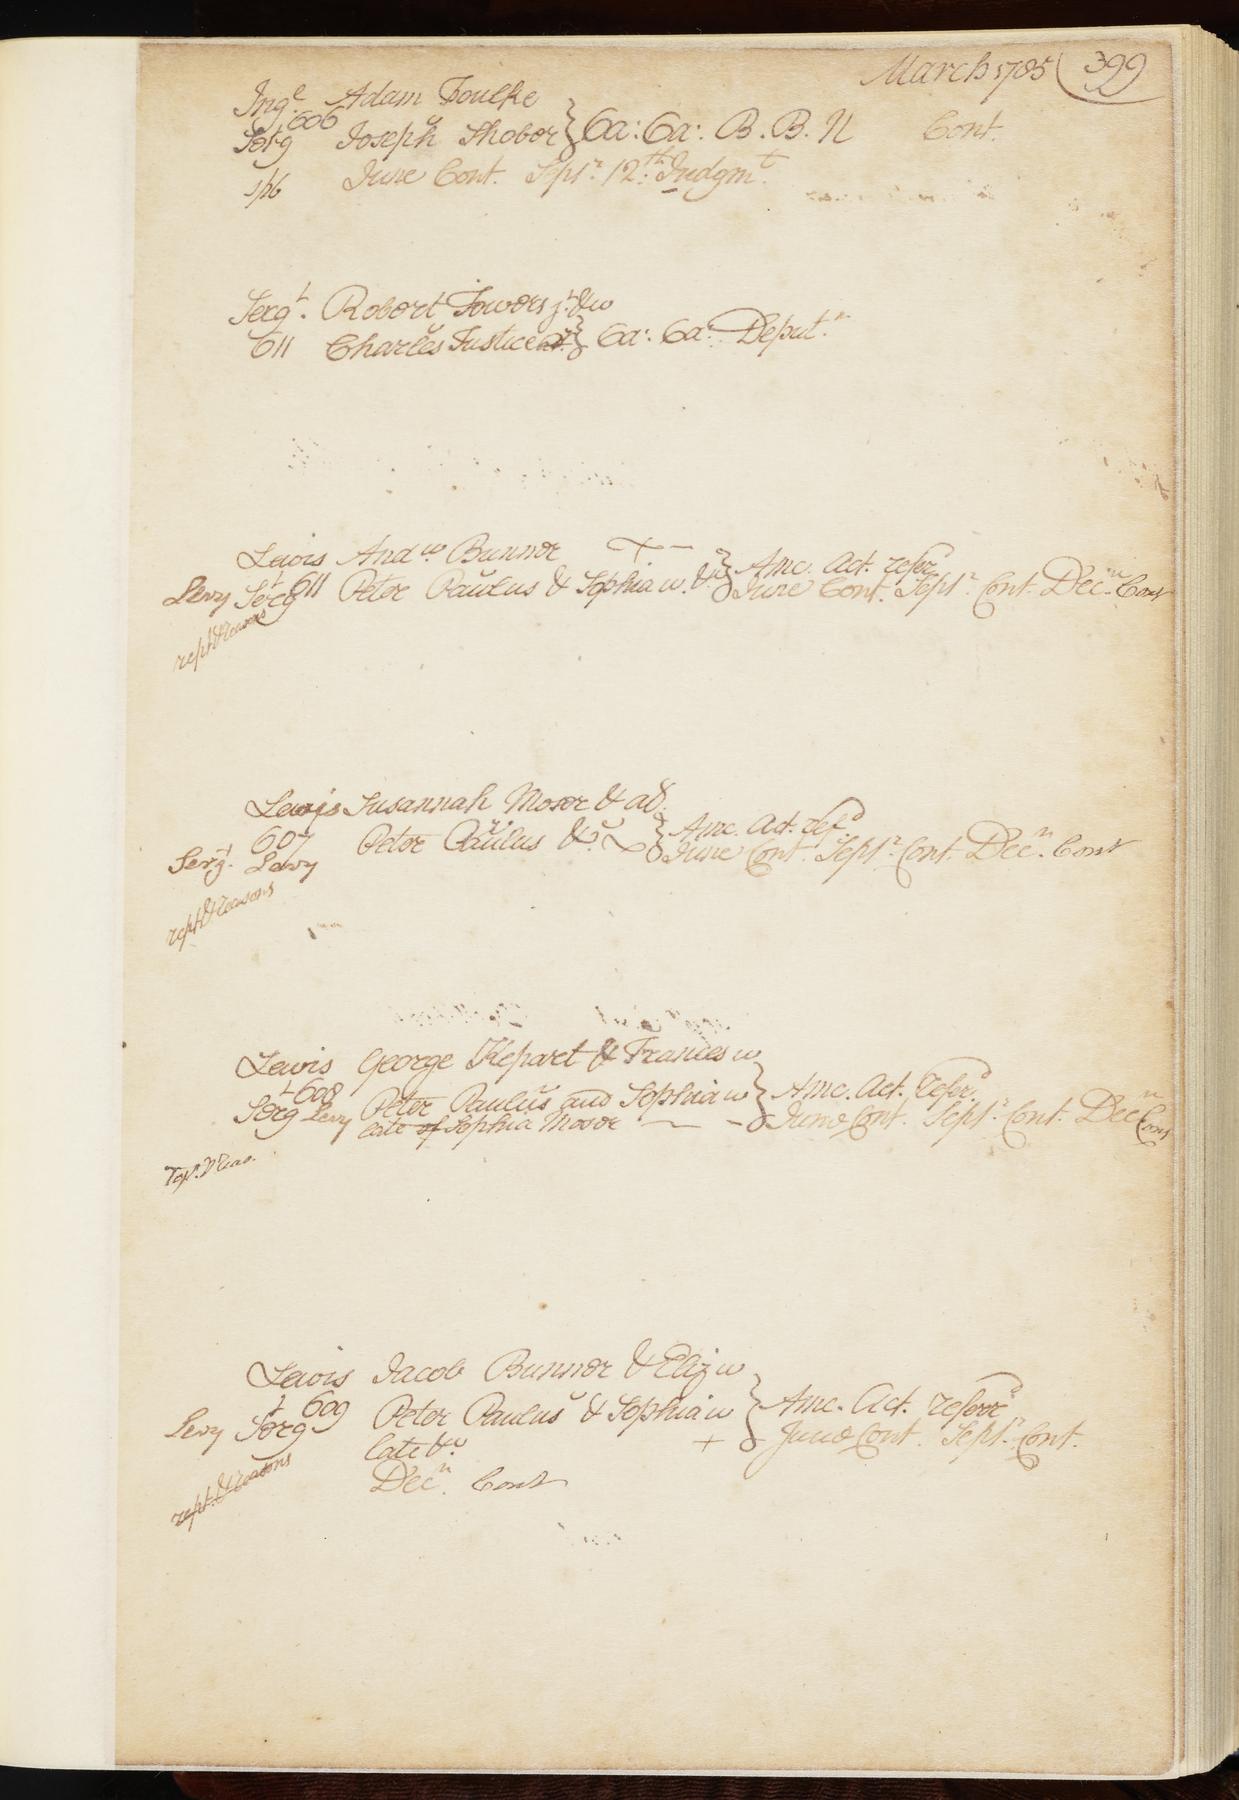 March 1785 399
Ing.e Adam Foulke
606
Serg Joseph Shober } Ca: Sa: B. B. N Cont.
June Cont. Sptr. 12th. Judgmt.
Sergt. Robert Towers jr. &w
611 Charles Justice } Ca: Sa: Deput.n
Lewis Andw. Bunner } Amc. Act. referd
Levy Sergt 611 Peter Paulus & Sophia w. &c } June Cont. Septr. Cont. Decn. Cont
rept. & reasons
Lewis Susannah Moser & al. } Amc. Act. refd
607 Peter Paulus &c } June Cont. Septr. Cont. Decn. Cont
Sergt. Levy
rept & reasons
Lewis George Kepart & Frances w
608
Sergt Levy Peter Paulus and Sophia w } Amc. Act. referd
late of Sophia Moser } June Cont. Septr. Cont. Decn Cont
Rept. & reas.
Lewis Jacob Bunner & Eliz w
Levy Sergt 609 Peter Paulus & Sophia w } Amc. Act. referrd
late &c + June Cont. Septr. Cont.
rept. & reasons
Decn. Cont